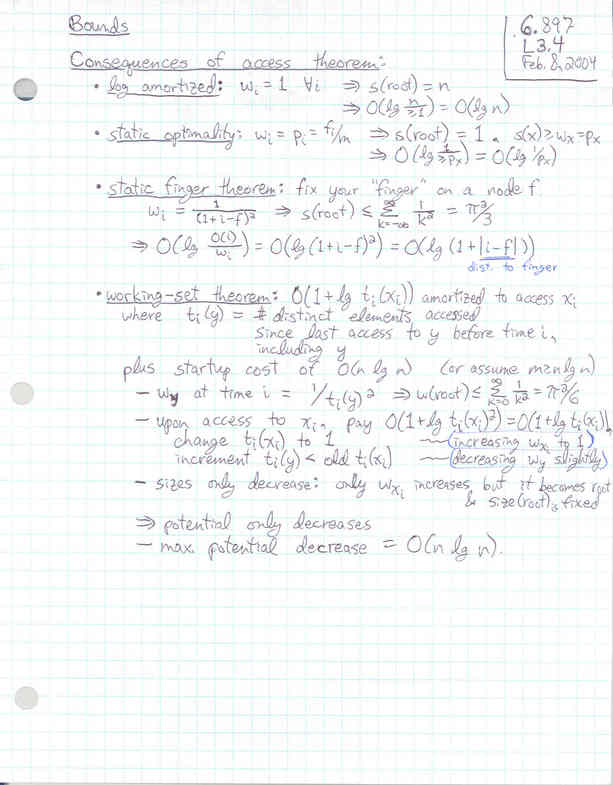 Bounds
6.897
L3.4
Feb. 8, 2004
Consequences of access theorem:
• log amortized: wᵢ = 1 ∀i ⇒ s(root) = n
⇒ O(lg n/≥1) = O(lg n)
• static optimality: wᵢ = pᵢ = fᵢ/m ⇒ s(root) = 1, s(x) ≥ wₓ = pₓ
⇒ O(lg 1/≥pₓ) = O(lg 1/pₓ)
• static finger theorem: fix your "finger" on a node f
wᵢ = 1/(1+i-f)² ⇒ s(root) ≤ Σ_{k=-∞}^{∞} 1/k² = π²/3
⇒ O(lg O(1)/wᵢ) = O(lg (1+i-f)²) = O(lg (1+|i-f|))
dist. to finger
• working-set theorem: O(1+lg tᵢ(xᵢ)) amortized to access xᵢ
where tᵢ(y) = # distinct elements accessed
since last access to y before time i,
including y
plus startup cost of O(n lg n) (or assume m≥n lg n)
– w_y at time i = 1/tᵢ(y)² ⇒ w(root) ≤ Σ_{k=0}^{∞} 1/k² = π²/6
– upon access to xᵢ, pay O(1+lg tᵢ(xᵢ)²) = O(1+lg tᵢ(xᵢ)),
change tᵢ(xᵢ) to 1 ~~ (increasing w_{xᵢ} to 1)
increment tᵢ(y) < old tᵢ(xᵢ) ~~ (decreasing w_y slightly)
– sizes only decrease: only w_{xᵢ} increases, but it becomes root
& size(root) is fixed
⇒ potential only decreases
– max. potential decrease = O(n lg n).